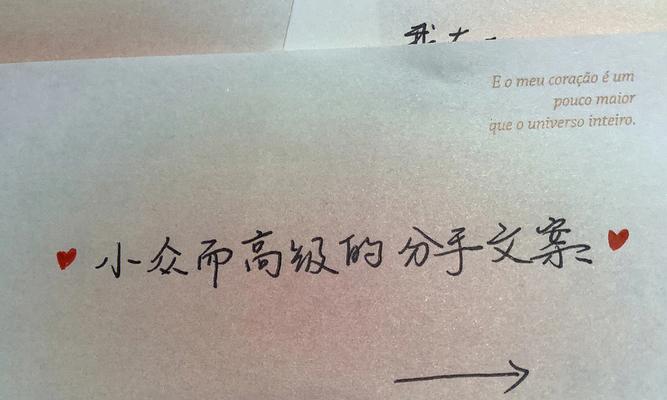 E o meu coração é um
pouco maior
que o universo inteiro.
小众而高级的分手文案